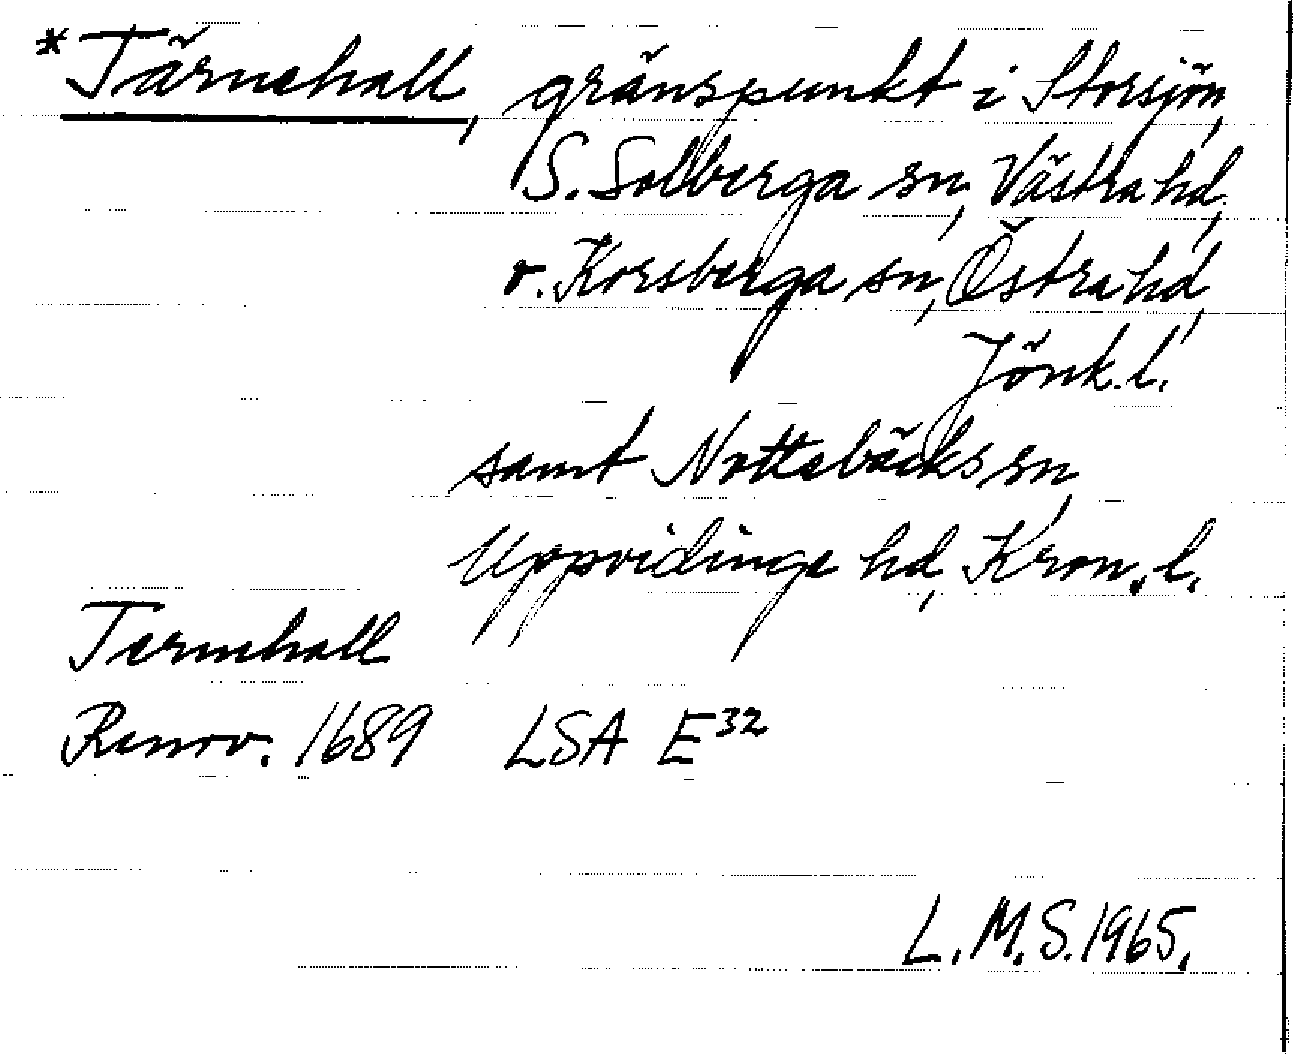 *Tärnehall, gränspunkt i Storsjön,
S. Solberga sn, Västra hd,
o. Korsberga sn, Östra hd,
Jönk. l.
samt Nottebäcks sn,
Uppvidinge hd, Kron. l.
Ternehall
Renov. 1689 LSA E32
L.M.S. 1965.